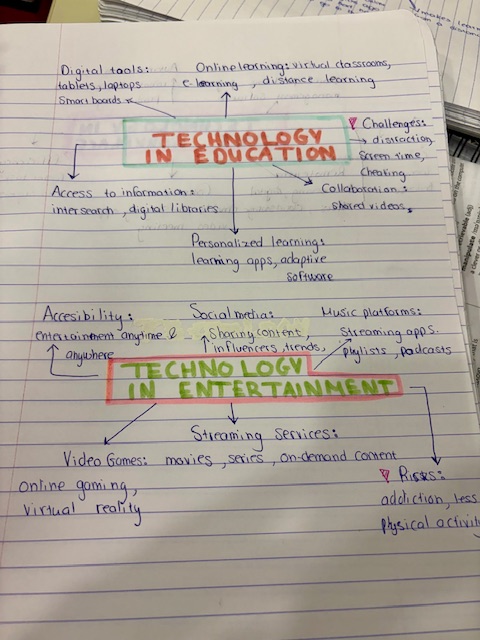 Digital tools:
tablets, laptops
Smart boards
Online learning: virtual classrooms,
e-learning, distance learning
TECHNOLOGY
IN EDUCATION
Challenges:
distraction,
Screen time,
Cheating
Access to information:
intersearch, digital libraries
Collaboration:
shared videos,
Personalized learning:
learning apps, adaptive
software
Accesibility:
entertainment anytime &
anywhere
Social media:
Sharing content
influencers, trends,
Music platforms:
Streaming apps.
playlists, podcasts
TECHNOLOGY
IN ENTERTAINMENT
Streaming services:
movies, series, on-demand content
Video Games:
online gaming,
virtual reality
Risks:
addiction, less
physical activity